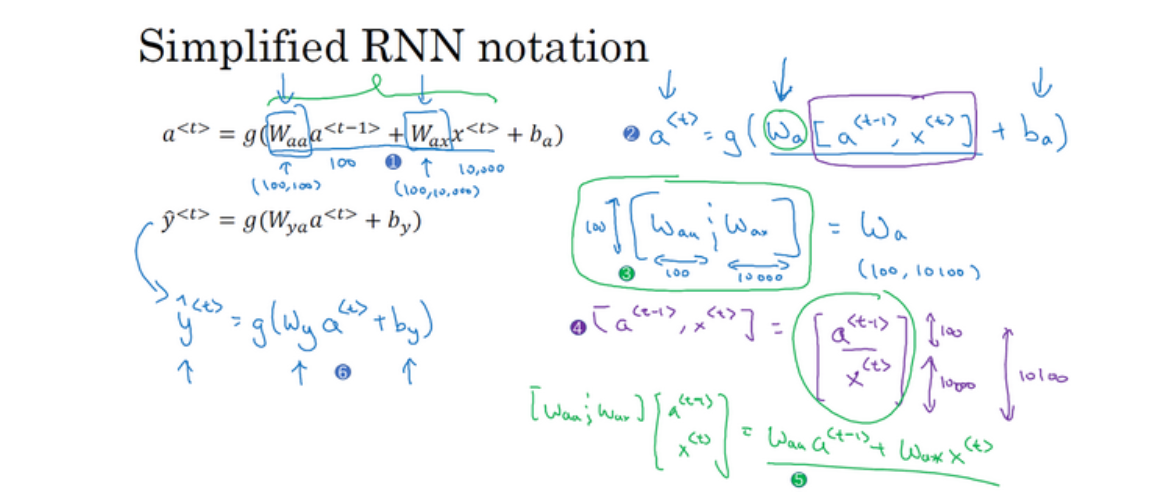 Simplified RNN notation
a^{<t>} = g(W_{aa}a^{<t−1>} + W_{ax}x^{<t>} + b_a)
↑ 100 ❶ ↑ 10,000
(100,100) (100,10,000)
ŷ^{<t>} = g(W_{ya}a^{<t>} + b_y)
ŷ^{<t>} = g(W_y a^{<t>} + b_y)
↑ ↑ ❻ ↑
❷ a^{<t>} = g(W_a [a^{<t-1>}, x^{<t>}] + b_a)
100 [W_{aa} ; W_{ax}] = W_a
❸ 100 10000 (100, 10100)
❹ [a^{<t-1>}, x^{<t>}] = [a^{<t-1>} x^{<t>}] 100 10000 10100
[W_{aa} ; W_{ax}] [a^{<t-1>} x^{<t>}] = W_{aa} a^{<t-1>} + W_{ax} x^{<t>}
❺